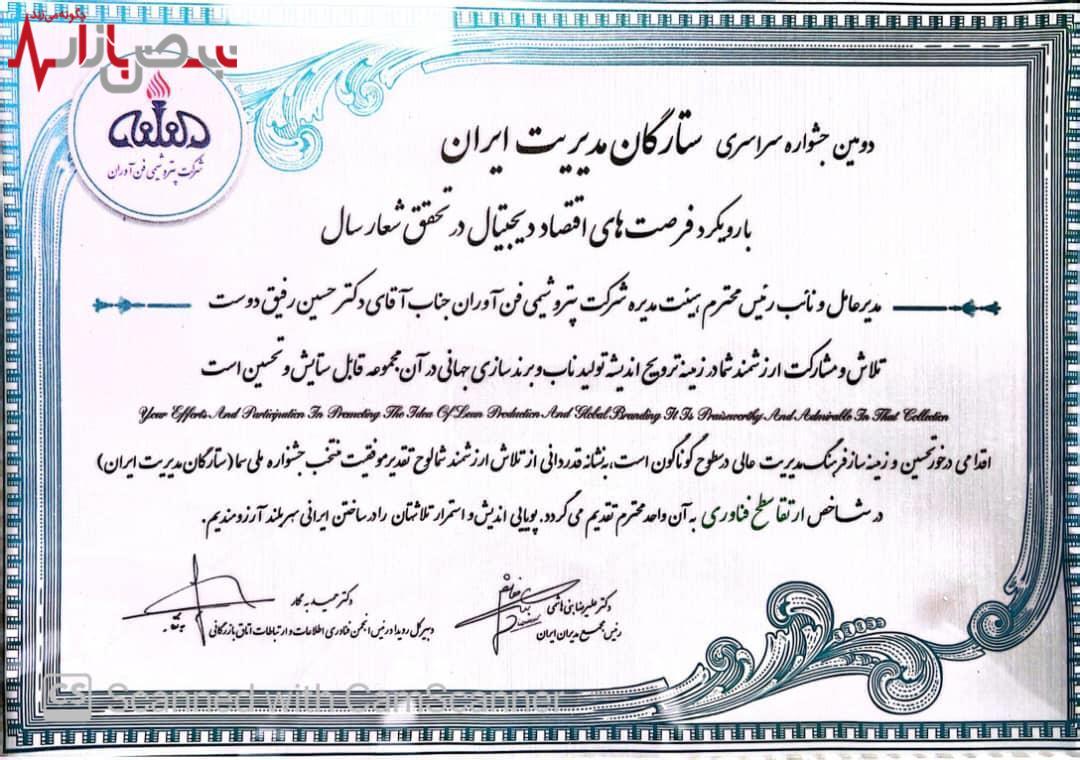 چگونه می‌زند
نبض بازار
شرکت پتروشیمی فن آوران
دومین جشواره سراسری ستارگان مدیریت ایران
با رویکرد فرصت های اقتصاد دیجیتال در تحقق شعار سال
مدیرعامل و نائب رئیس محترم هیئت مدیره شرکت پتروشیمی فن آوران جناب آقای دکتر حسین رفیق دوست
تلاش و مشارکت ارزشمند شما در زمینه ترویج اندیشه تولید ناب و برند سازی جهانی در آن مجموعه قابل ستایش و تحسین است
Your Efforts And Participation In Promoting The Idea Of Lean Production And Global Branding It Is Praiseworthy And Admirable In That Collection
اقدامی درخور تحسین و زمینه ساز فرهنگ مدیریت عالی در سطوح گوناگون است، به نشانه قدردانی از تلاش ارزشمند شما لوح تقدیر موفقیت منتخب جشواره ملی سما (ستارگان مدیریت ایران)
در شاخص ارتقا سطح فناوری به آن واحد محترم تقدیم می گردد. پویایی اندیش و استمرار تلاشتان را در ساختن ایرانی سربلند آرزومندیم.
دکتر علیرضا بنی هاشمی
رئیس مجمع مدیران ایران
دکتر حمید به کار
دبیر کل رویداد و رئیس انجمن فناوری اطلاعات و ارتباطات اتاق بازرگانی
CS Scanned with CamScanner